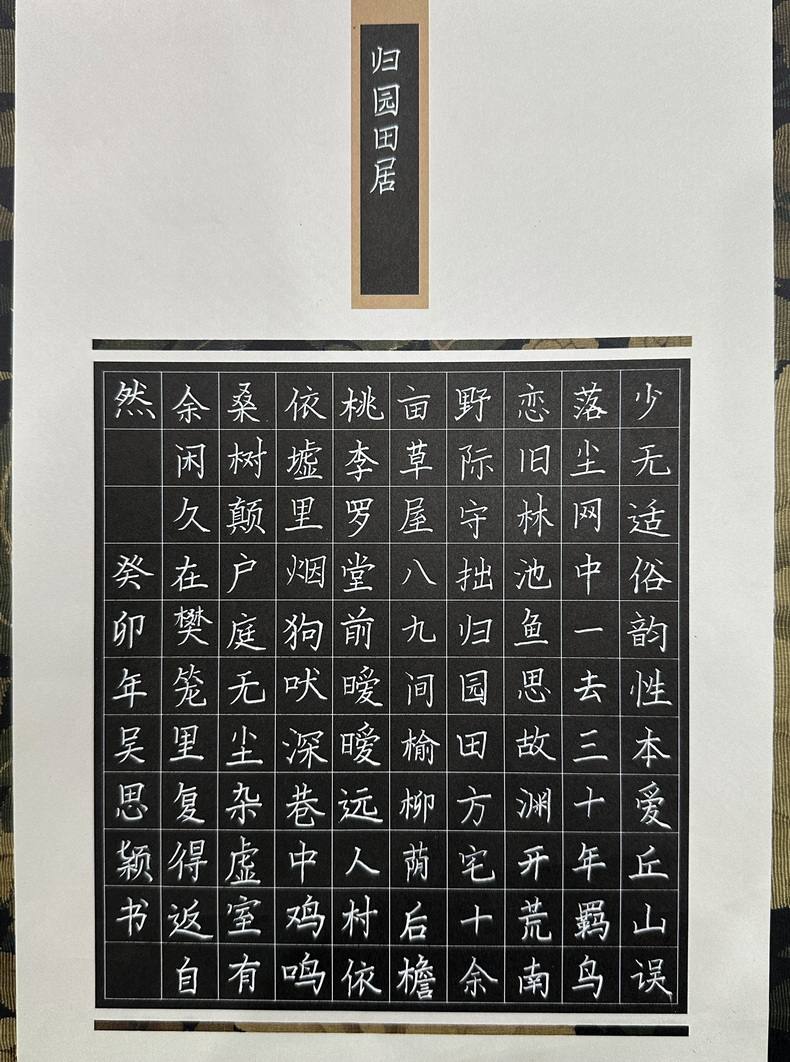 归园田居
少无适俗韵性本爱丘山误
落尘网中一去三十年羁鸟
恋旧林池鱼思故渊开荒南
野际守拙归园田方宅十余
亩草屋八九间榆柳荫后檐
桃李罗堂前暧暧远人村依
依墟里烟狗吠深巷中鸡鸣
桑树颠户庭无尘杂虚室有
余闲久在樊笼里复得返自
然 癸卯年吴思颖书